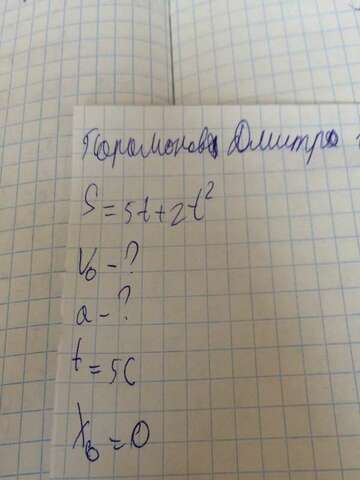 Парамонов Дмитро
S = 5t + 2t²
V₀ - ?
a - ?
t = 5c
X₀ = 0